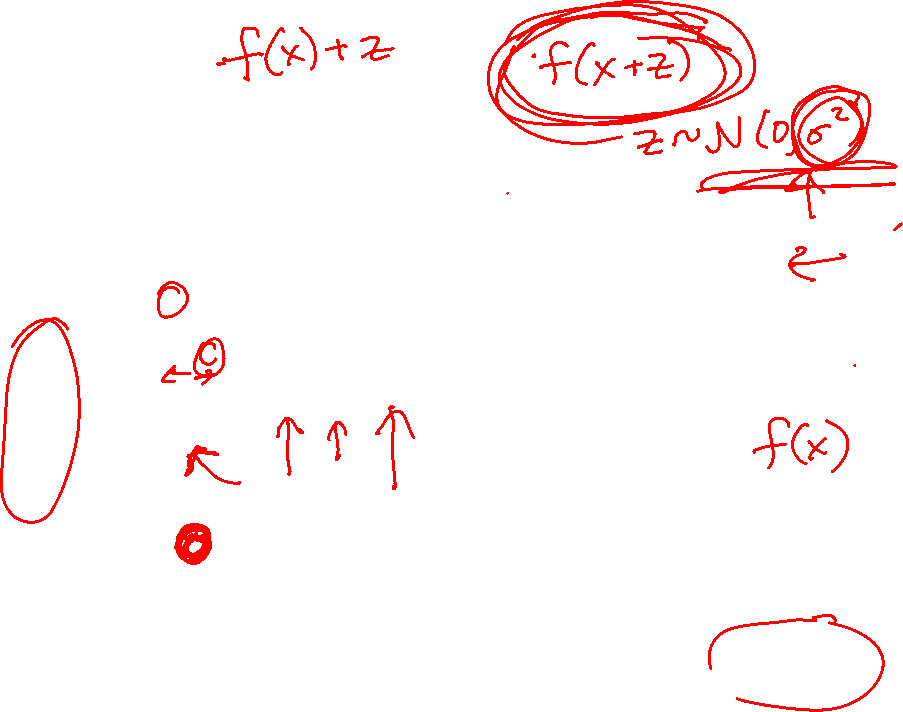 f(x)+z
f(x+z)
z~N(0,σ²)
c
f(x)